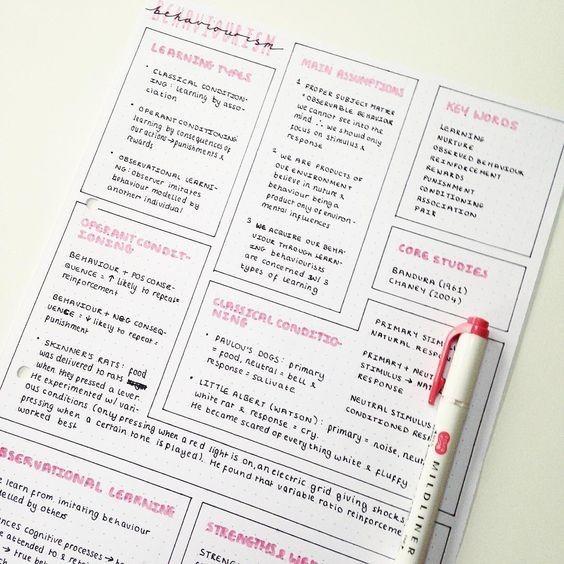 BEHAVIOURISM
behaviourism
LEARNING TYPES
• CLASSICAL CONDITION-
ING: learning by asso-
ciation
• OPERANT CONDITIONING
learning by consequences of
our actions → punishments &
rewards
• OBSERVATIONAL LEARNI-
NG: observer imitates
behaviour modelled by
another individual
MAIN ASSUMPTIONS
1 PROPER SUBJECT MATTER
= OBSERVABLE BEHAVIOUR
we cannot see into the
mind ∴ we should only
focus on stimulus &
response
2 WE ARE PRODUCTS OF
OUR ENVIRONMENT
believe in nurture &
behaviour being a
product only of environ-
mental influences
3 WE ACQUIRE OUR BEHA-
VIOUR THROUGH LEARN-
ING behaviourists
are concerned w/ 3
types of learning
KEY WORDS
LEARNING
NURTURE
OBSERVED BEHAVIOUR
REINFORCEMENT
REWARDS
PUNISHMENT
CONDITIONING
ASSOCIATION
PAIR
CORE STUDIES
BANDURA (1961)
CHANEY (2004)
OPERANT CONDIT-
IONING
BEHAVIOUR + POS CONSE-
QUENCE = ↑ likely to repeat =
reinforcement
BEHAVIOUR + NEG CONSEQ-
UENCE = ↓ likely to repeat =
punishment
• SKINNER'S RATS: food
was delivered to rats
when they pressed a lever.
He experimented w/ vari-
ous conditions (only pressing when a red light is on, an electric grid giving shocks,
pressing when a certain tone is played). He found that variable ratio reinforcement
worked best
CLASSICAL CONDITIO-
NING
• PAVLOV'S DOGS: primary
= food, neutral = bell &
response = salivate
• LITTLE ALBERT (WATSON): primary = noise, neutral
white rat & response = cry.
He became scared of everything white & fluffy
PRIMARY STIMUL
NATURAL RESPON
PRIMARY + NEUT
STIMULUS → NAT
RESPONSE
NEUTRAL STIMULUS
CONDITIONED RESP
OBSERVATIONAL LEARNING
learn from imitating behaviour
modelled by others
cognitive processes →
attended to & retain
→ true beha
STRENGTHS & WEA
STRENGTHS
MILDLINER